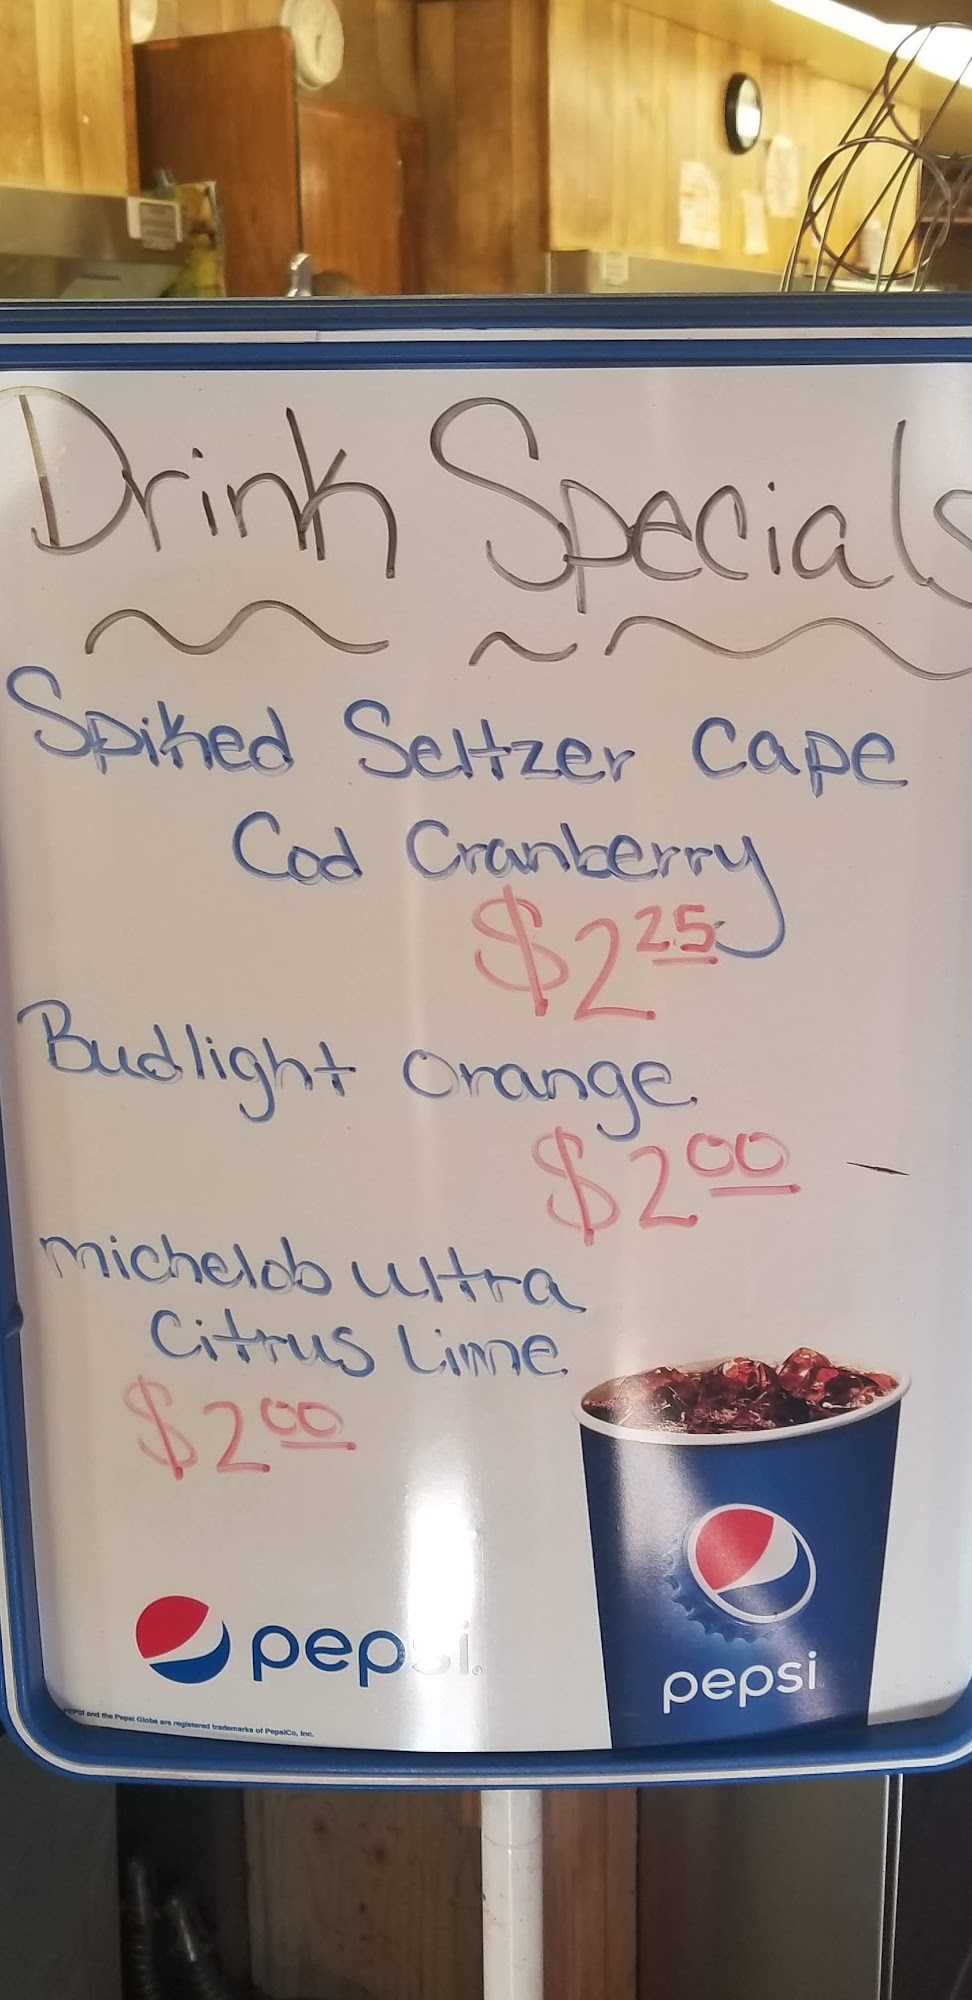 Drink Specials
Spiked Seltzer Cape
Cod Cranberry
$2.25
Budlight Orange
$2 00
michelob ultra
Citrus Lime
$2 00
pepsi
pepsi
PEPSI and the Pepsi Globe are registered trademarks of PepsiCo, Inc.